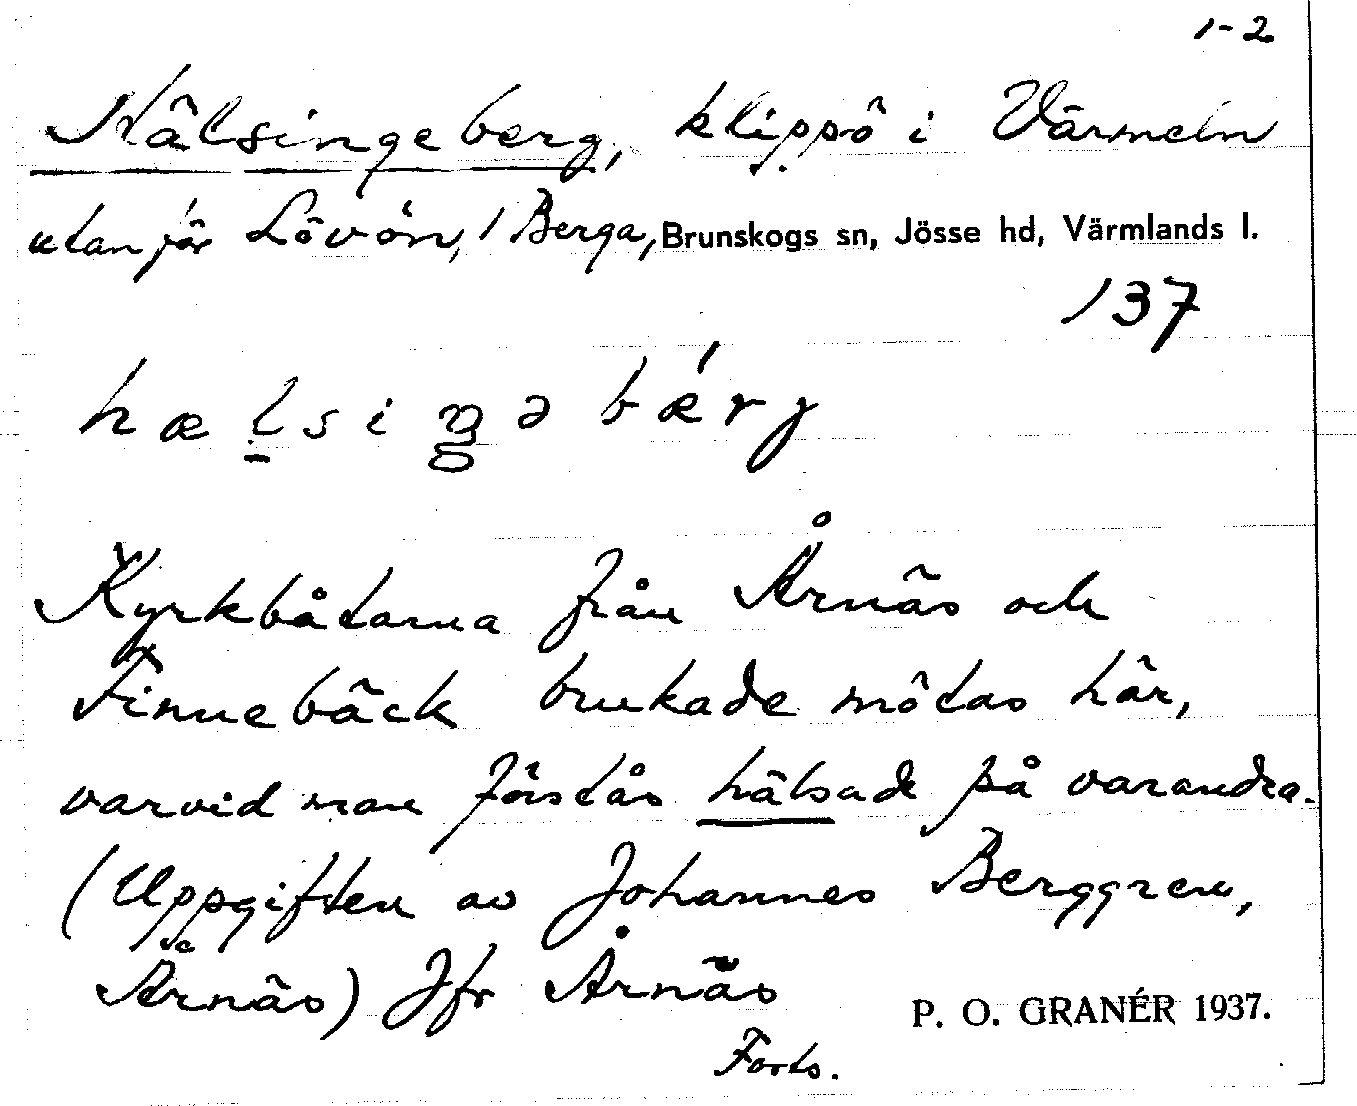 1-2
Hälsingeberg, klippö i Värmeln
utanför Lövön, Berga, Brunskogs sn, Jösse hd, Värmlands l.
137
hælsiŋəbǽrj
Kyrkbåtarna från Årnäs och
Finnebäck brukade mötas här,
varvid man förstås hälsade på varandra.
(Uppgiften av Johannes Berggren,
Årnäs) Jfr Årnäs
P. O. GRANÉR 1937.
Forts.